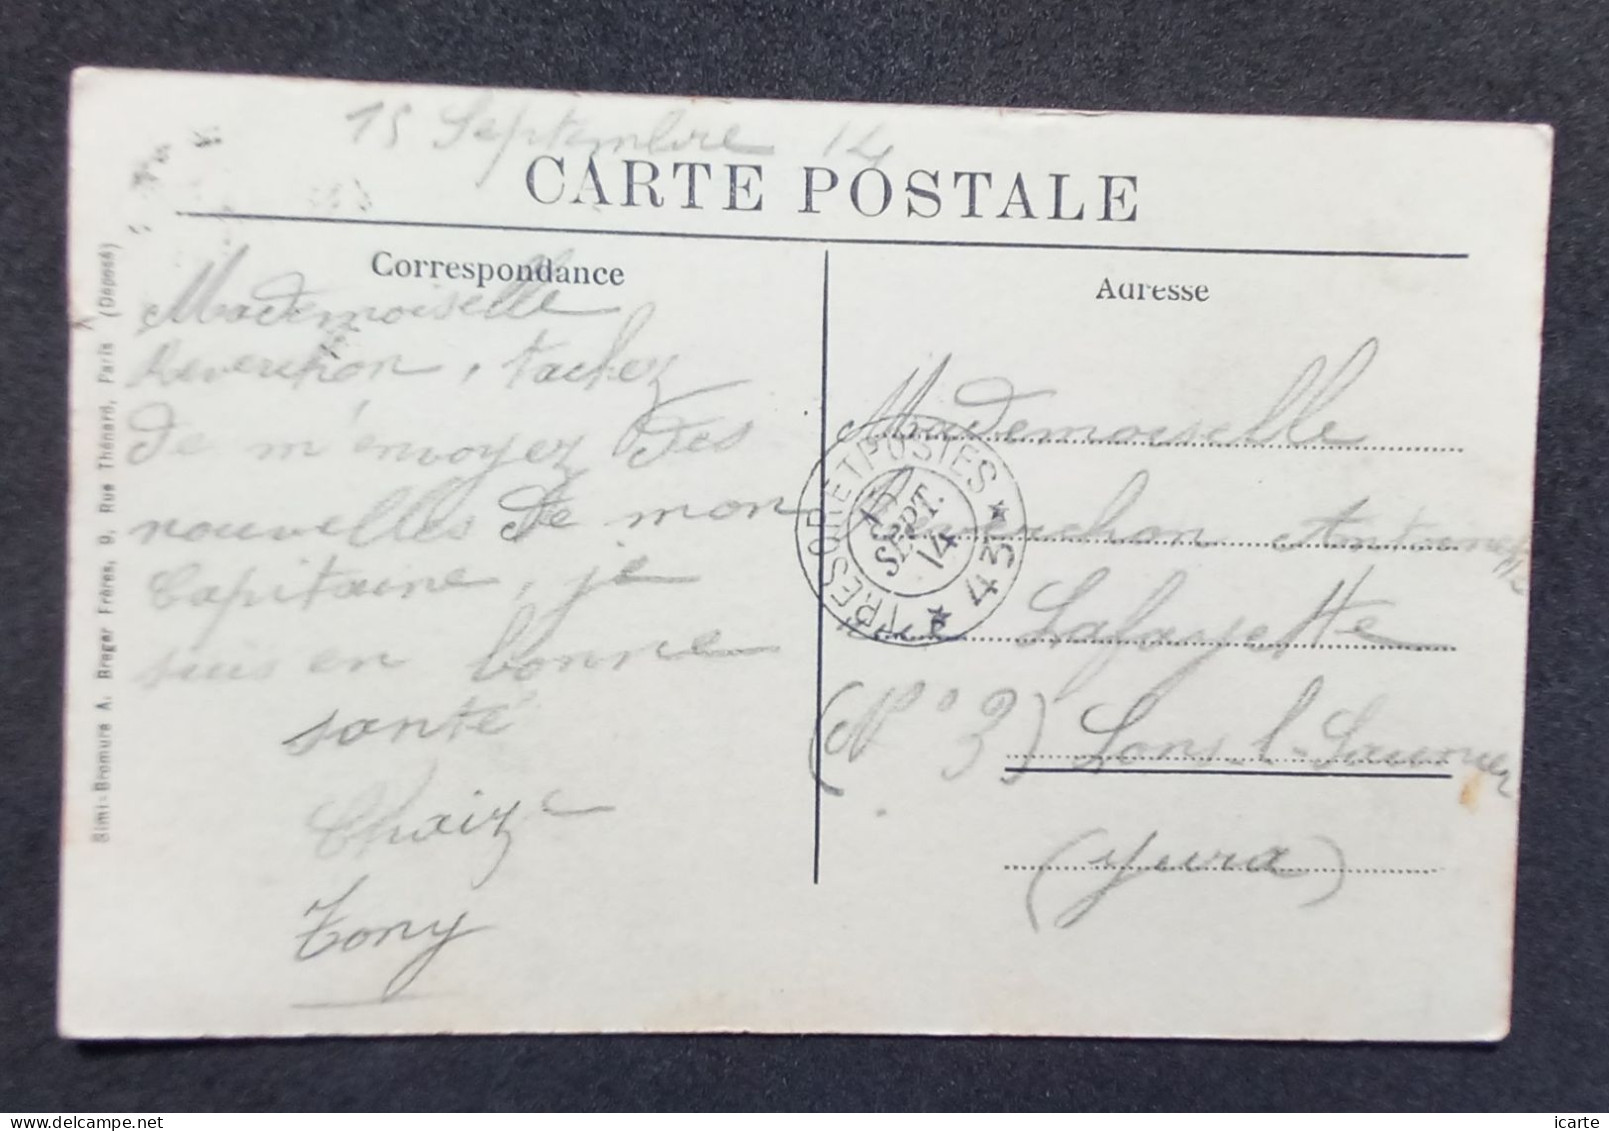 15 Septembre 14
CARTE POSTALE
Correspondance
Mademoiselle
Reverchon, tachez
de m'envoyez des
nouvelles de mon
Capitaine, je
suis en bonne
santé
Chaize
Tony
Adresse
Mademoiselle
Reverchon
Lafayette
(N° 3) Lons l-Saunier
(Jura)
TRESOR ET POSTES
15
SEPT.
14
* 43 *
Simi-Bromure A. Breger Frères, 9, Rue Thénard, Paris (Déposé)
icarte